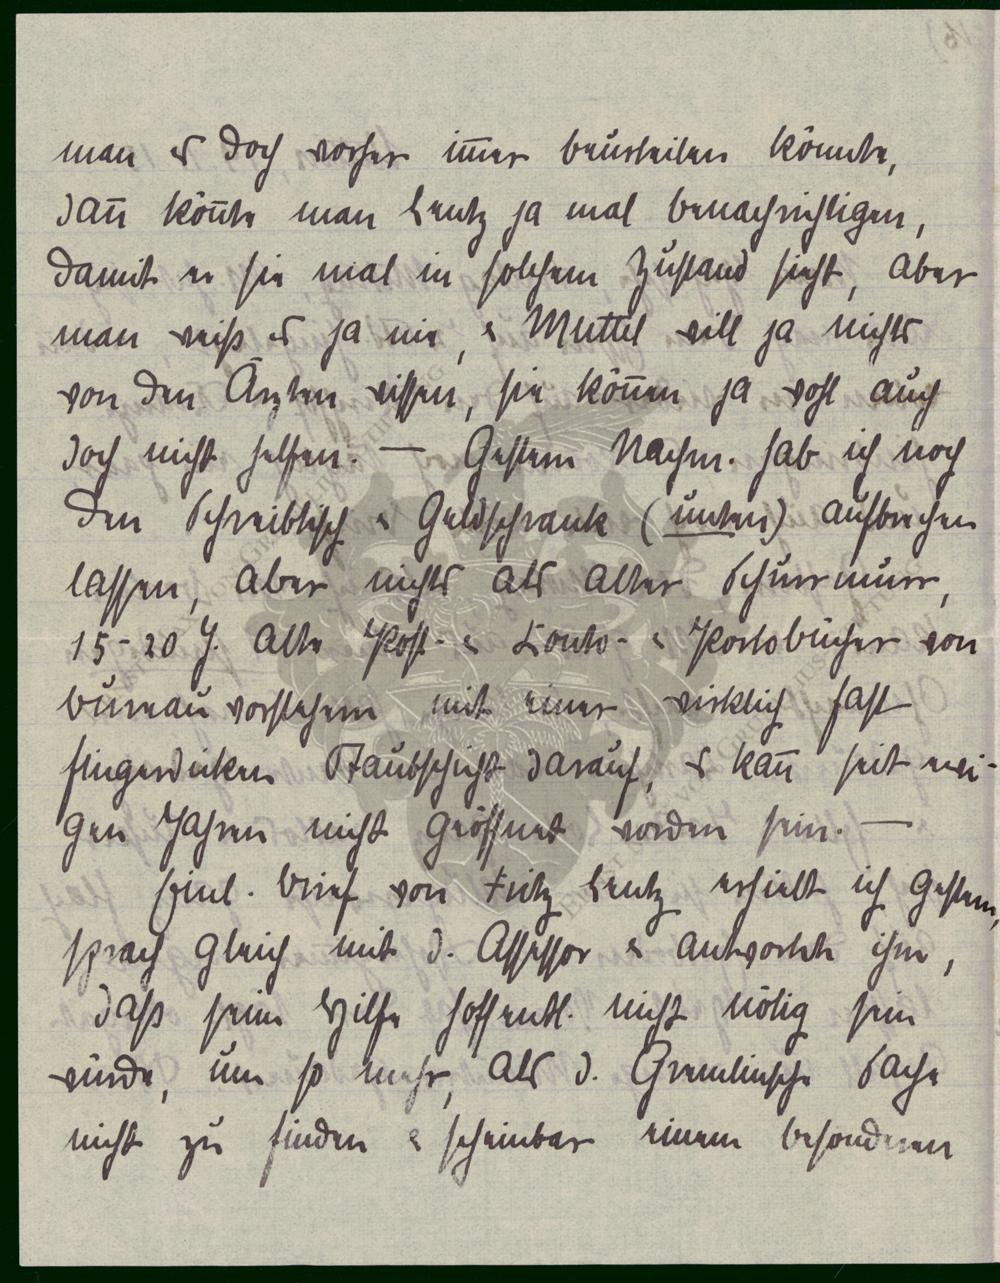 man es doch vorher im̅er beurteilen könnte,
dan̅ kön̅te man Lentz ja mal benachrichtigen,
damit er sie mal in solchem Zustand sieht, aber
man weiß es ja nie, & Muttel will ja nichts
von den Ärzten wissen, sie kön̅en ja wohl auch
doch nicht helfen. — Gestern Nachm. hab ich noch
den Schreibtisch & Geldschrank (unten) aufbrechen
lassen, aber nichts als alter Schurrmurr,
15-20 J. alte Post- & Konto- & Portobücher von
bureauvorstehern mit einer wirklich fast
fingerdicken Staubschicht darauf, es kan̅ seit ewi-
gen Jahren nicht geöffnet worden sein. —
Brief von Fritz Lentz erhielt ich gestern,
sprach gleich mit d. Assessor & antwortete ihm,
daß seine Hilfe hoffentl. nicht nötig sein
würde, um so mehr, als d. Sache
nicht zu finden & scheinbar einem besonderen